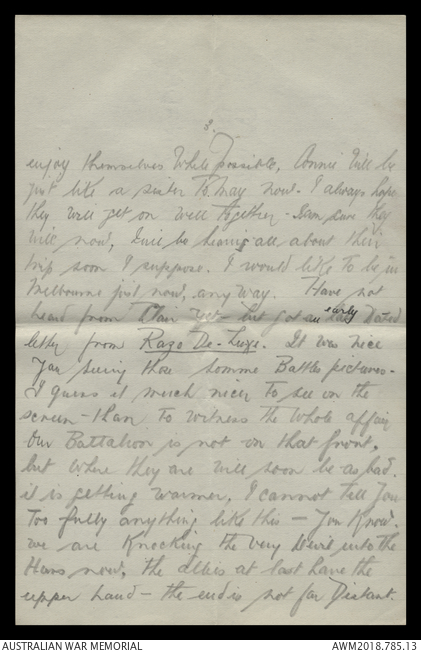 3.
enjoy themselves While possible, Annie Will be
just like a sister To May now. I always hope
they will get on well together - Im sure they
Will now, I will be hearing all about their
trip soon I suppose. I would like To be in
Melbourne just now, any way. Have not
heard from Them yet - but got an early Dated
letter from Razo De-Luxe. It was nice
You seeing those Somme Battle pictures -
I guess it much nicer to see on the
screen - than to witness the Whole affair
Our Battalion is not on that front,
but Where they are will soon be as bad.
it is getting warmer, I cannot tell You
Too fully anything like this - You Know.
we are Knocking the very Devil into the
Huns now, the allies at last have the
upper hand - the end is not far Distant.
AUSTRALIAN WAR MEMORIAL
AWM2018.785.13